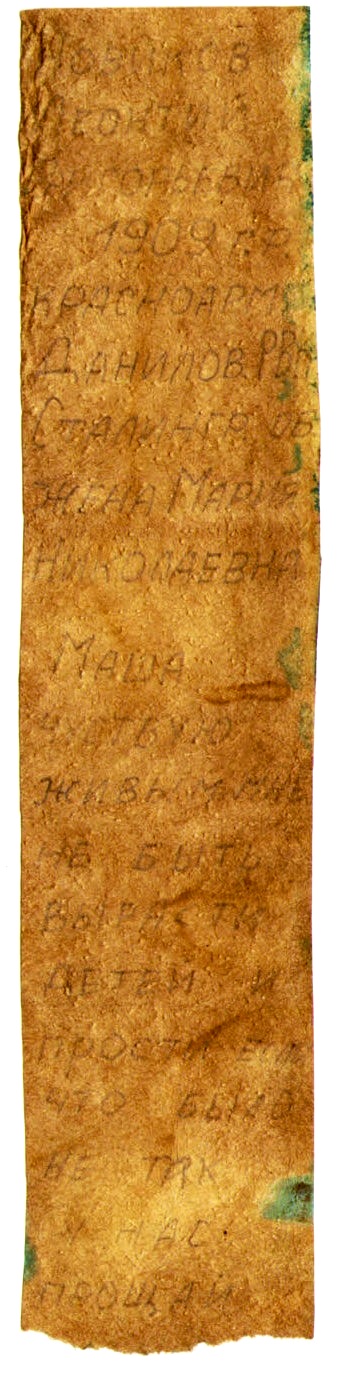 1909 г.р
КРАСНОАРМЕ
ДАНИЛОВ. РВК
СТАЛИНГР. ОБ
ЖЕНА МАРИЯ
НИКОЛАЕВНА
МАША
ЧУСТВУЮ
ЖИВЫМ МНЕ
НЕ БЫТЬ
ВЫРАСТИ
ДЕТЕЙ И
ПРОСТИ ЕСЛИ
ЧТО БЫЛО
НЕ ТАК
У НАС
ПРОЩАЙ